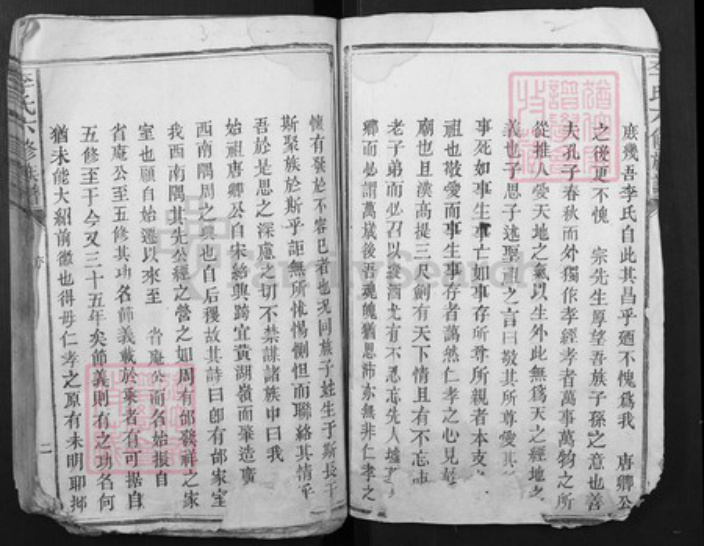 庶幾吾李氏自此其昌乎廼不愧爲我 唐卿公
之後更不愧 宗先生厚望吾族子孫之意也善
夫孔子春秋而外獨作孝經孝者萬事萬物之所
從推人受天地之氣以生外此無爲天之經地之
義也子思子述聖祖之言曰敬其所尊愛其
事死如事生事亡如事存所尊所親者本支
祖也敬愛而事生事存者藹然仁孝之心見於
廟也且漢高提三尺劍有天下情且有不忘
老子弟而必召以袞酒尤有不忍忘先人墟
鄉而必謂萬歲後吾魂魄猶思沛亦無非仁孝之
懷有發於不容已者也况同族子姓生于斯長于
斯聚族於斯乎詎無所怵惕惻怛而聯絡其情乎
吾於是思之深慮之切不禁謀諸族中曰我
始祖唐卿公自宋紹興跨宜黃湖嶺而肇造
西南隅周之興也自后稷故其詩曰卽有邰家室
我西南隅其先公經之營之如周有邰發祥之家
室也願自始遷以來至 省庵公而名始振自
省庵公至五修其功名節義載於乘者有可據自
五修至于今又三十五年矣節義則有之功名何
猶未能大紹前徽也得毋仁孝之原有未明耶抑
李氏六修族譜
李氏六修族譜
二
FamilySearch